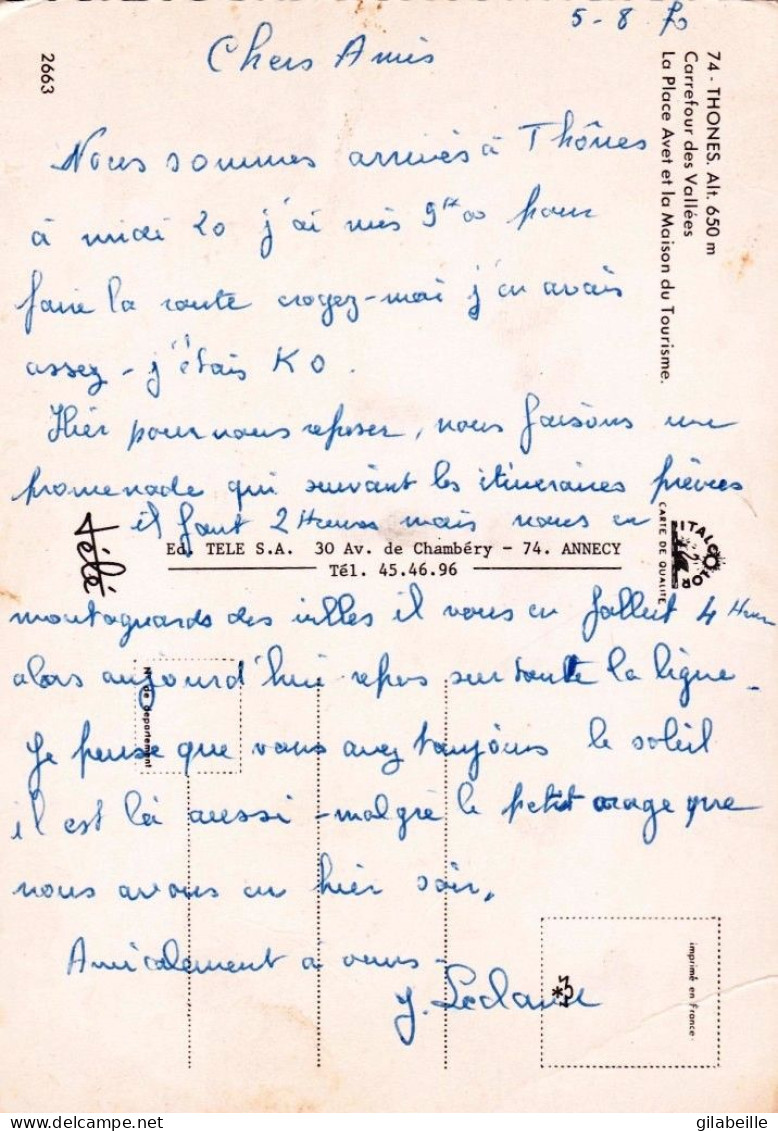 5-8 70
Chers Amis
Nous sommes arrivés à Thônes
à midi 20 j'ai mis 9 00 pour
faire la route croyez-moi j'en avais
assez - j'étais KO.
Hier pour nous reposer, nous faisons une
promenade qui suivant les itineraires prévus
il faut 2 Heures mais nous en
montagnards des villes il nous en fallut 4 Heures
alors aujourd'hui repos sur toute la ligne.
Je pense que vous avez toujours le soleil
il est là aussi - malgré le petit orage que
nous avons eu hier soir.
Amicalement à vous -
2663
74 - THONES. Alt. 650 m
Carrefour des Vallées
La Place Avet et la Maison du Tourisme.
télé
Ed. TELE S.A. 30 Av. de Chambéry - 74. ANNECY
Tél. 45.46.96
ITALCOLOR
CARTE DE QUALITE
N° de département
imprimé en france
gilabeille